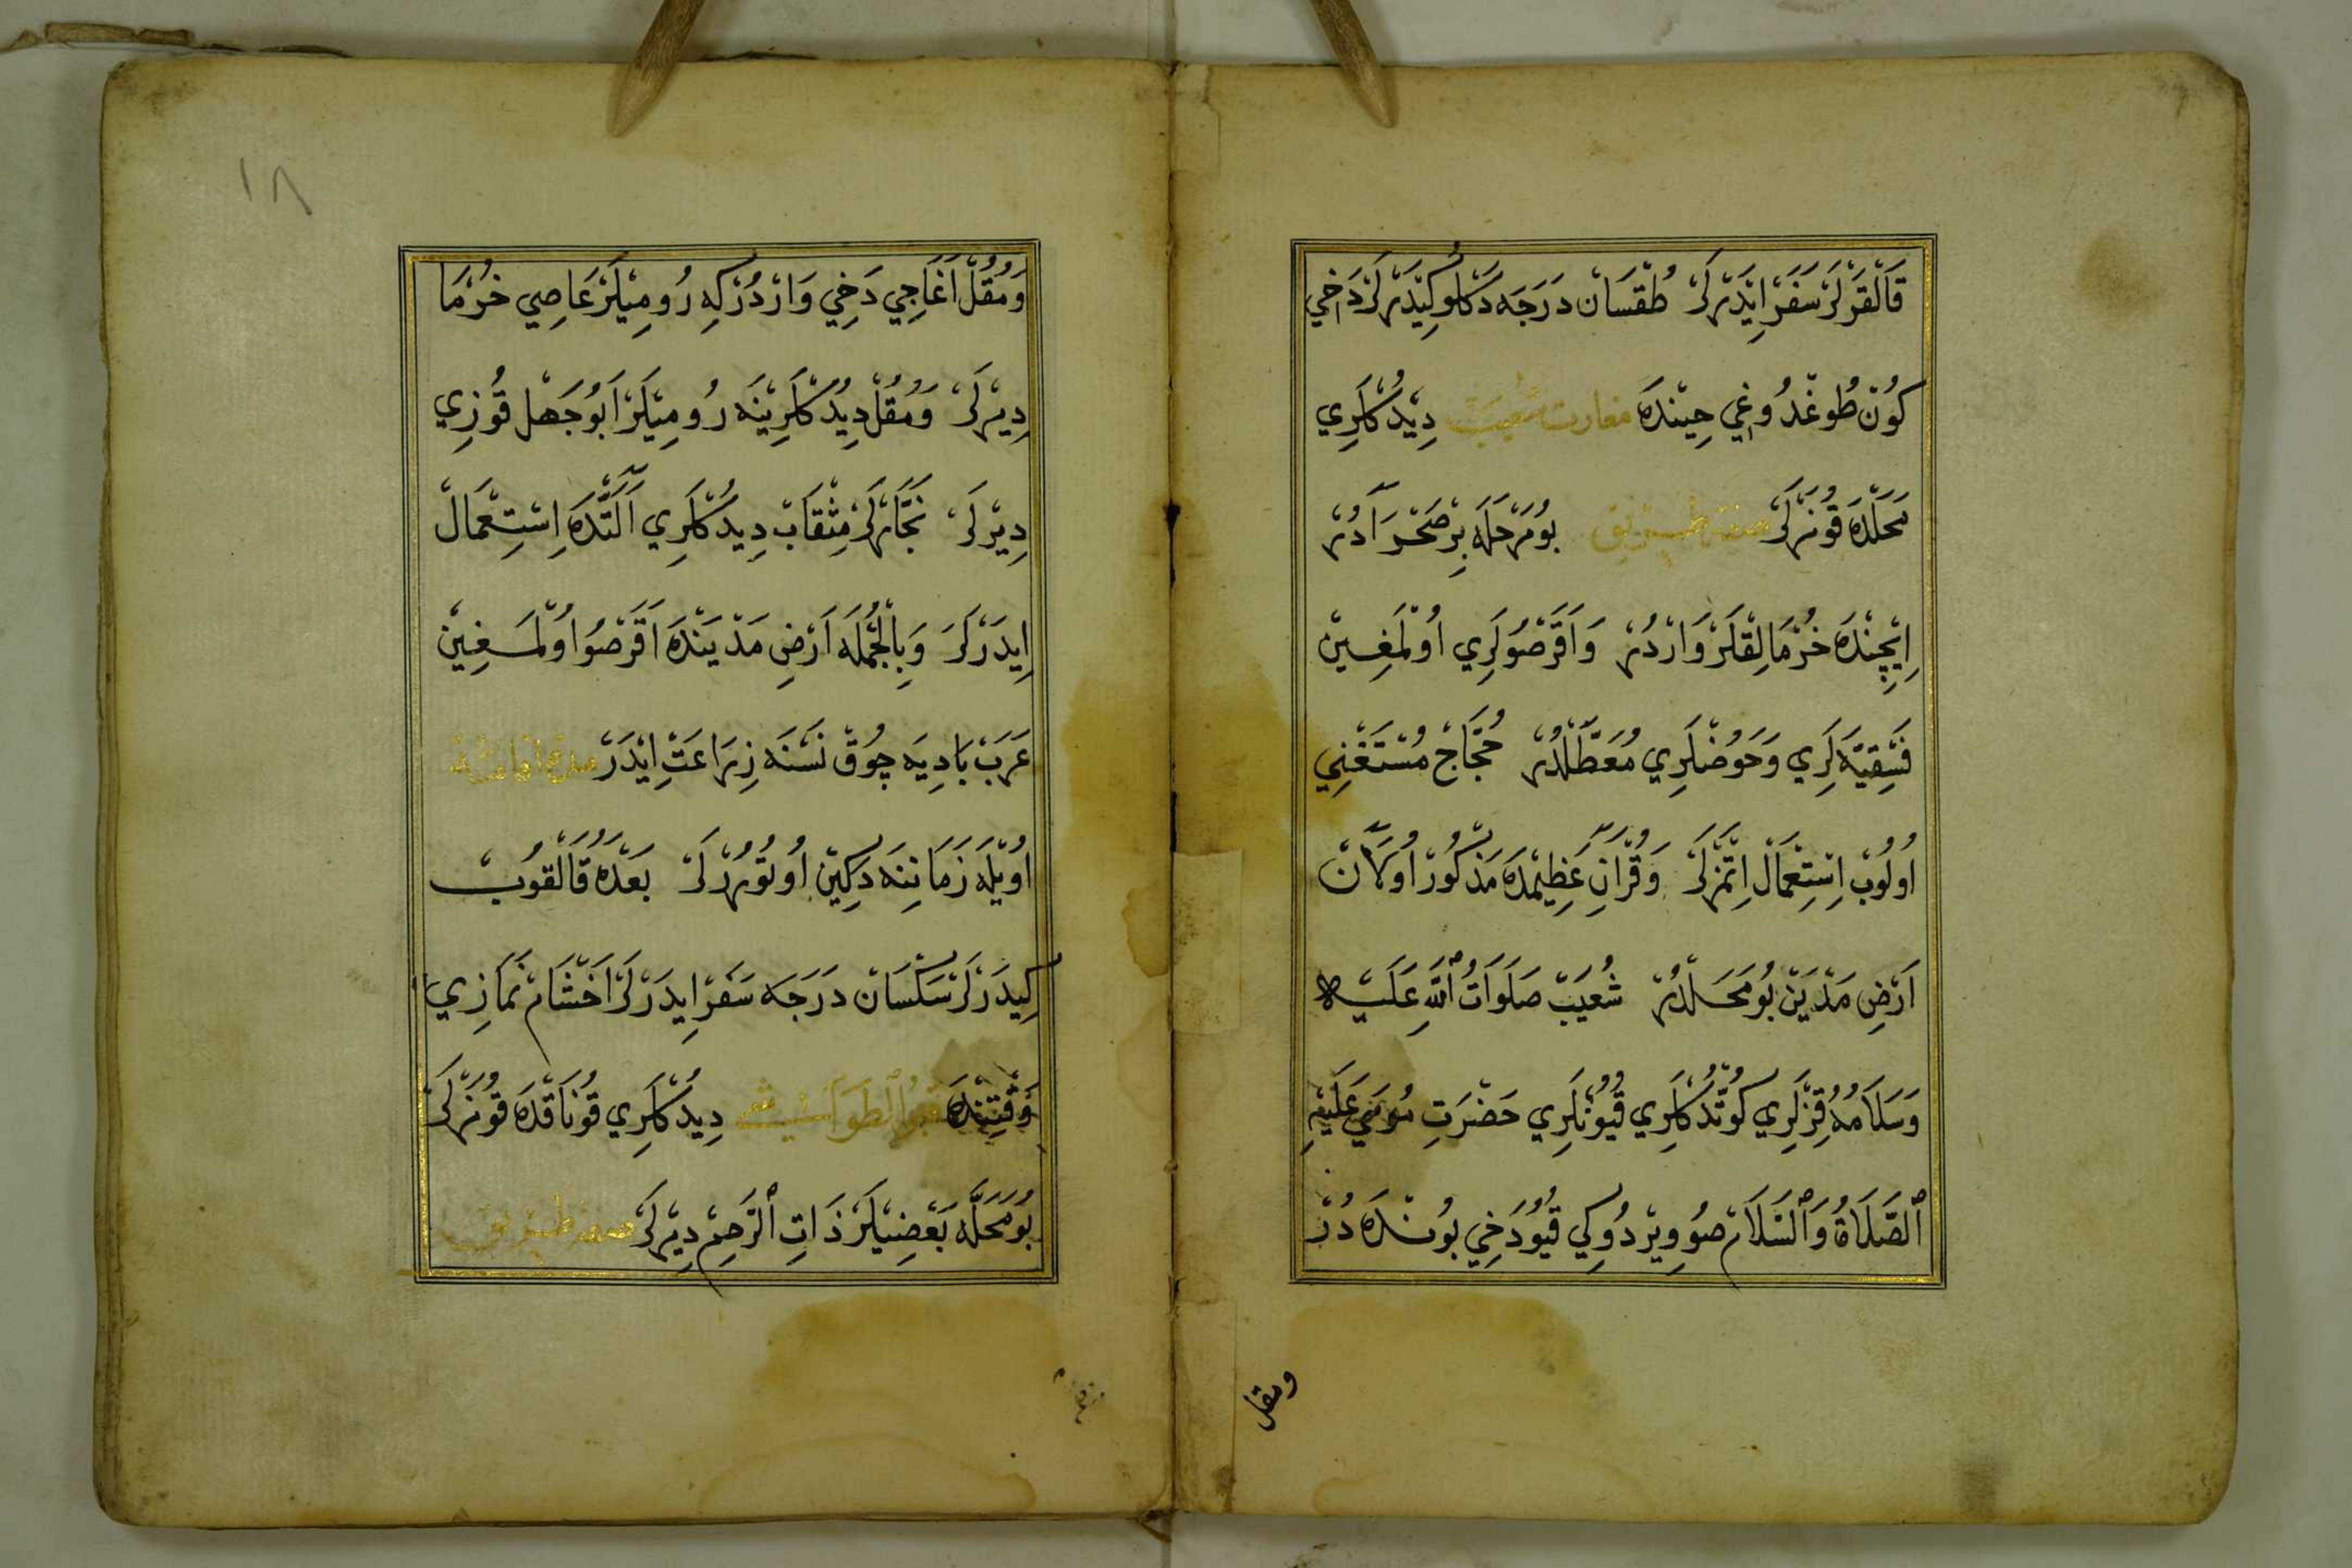 قَالْقَرْلَرْ سَفَرْ اِيْدَرْلَرْ طُقْسَانْ دَرَجَه دَكْلُو كِيْدَرْلَرْ دَاخِي
كُونْ طُوغْدُوغِي حِيْندَه مغارت شعيب دِيْدُكْلَرِي
مَحَلْدَه قُونَرْلَرْ صفت طريق بُو مَرْحَلَه بِرْ صَحْرَادُرْ
اِيچِنْدَه خُرْمَالِقْلَرْ وَارْدُرْ وَاَقَرْصُولَرِي اُولْمَغِيْن
فَسْقِيَّه لَرِي وَحَوْضْلَرِي مُعَطَّلْدُرْ حُجَّاجْ مُسْتَغْنِي
اُولُوبْ اِسْتِعْمَالْ اِتْمَزْلَرْ وَقُرْآنِ عَظِيمْدَه مَذْكُورْ اُولَانْ
اَرْضِ مَدْيَنْ بُو مَحَلْدُرْ شُعَيْبْ صَلَوَاتُ اللّٰهِ عَلَيْه
وَسَلَامُهُ قِزْلَرِي كُوتْدُكْلَرِي قُيُونْلَرِي حَضْرَتِ مُوسَي عَلَيْهِ
ٱلصَّلَاةُ وَٱلسَّلَامْ صُو وِيرْدُوكِي قُيُو دَخِي بُونْدَه دُرْ
ومقل
١٨
وَمُقُلْ اَغَاجِي دَخِي وَارْدُرْكِه رُومِيْلَرْ عَاصِي خُرْمَا
دِيْرلَرْ وَمُقُلْ دِيْدُكْلَرِيْنَه رُومِيْلَرْ اَبُو جَهْل قُوزِي
دِيْرلَرْ نَجَّارْلَرْ مِثْقَابْ دِيْدُكْلَرِي آلَتْدَه اِسْتِعْمَالْ
اِيدَرْلَرْ وَبِالْجُمْلَه اَرْضِ مَدْيَنْدَه اَقَرْصُو اُولْمَغِيْن
عَرَبْ بَادِيَه چُوقْ نَسْنَه زِرَاعَتْ اِيْدَرْ
اُويْلَه زَمَانِنَه دَكِيْن اُوتُورُرْلَرْ بَعْدَهُ قَالْقُوبْ
كِيدَرْلَرْ سَكْسَانْ دَرَجَه سَفَرْ اِيدَرْلَرْ اَخْشَامْ نَمَازِي
وَقْتِنْدَه قبر الطواشي دِيْدُكْلَرِي قُونَاقْدَه قُونَرْلَرْ
بُو مَحَلَّه بَعْضِيْلَرْ ذَاتِ ٱلرَّحِمْ دِيْرلَرْ صفت طريق